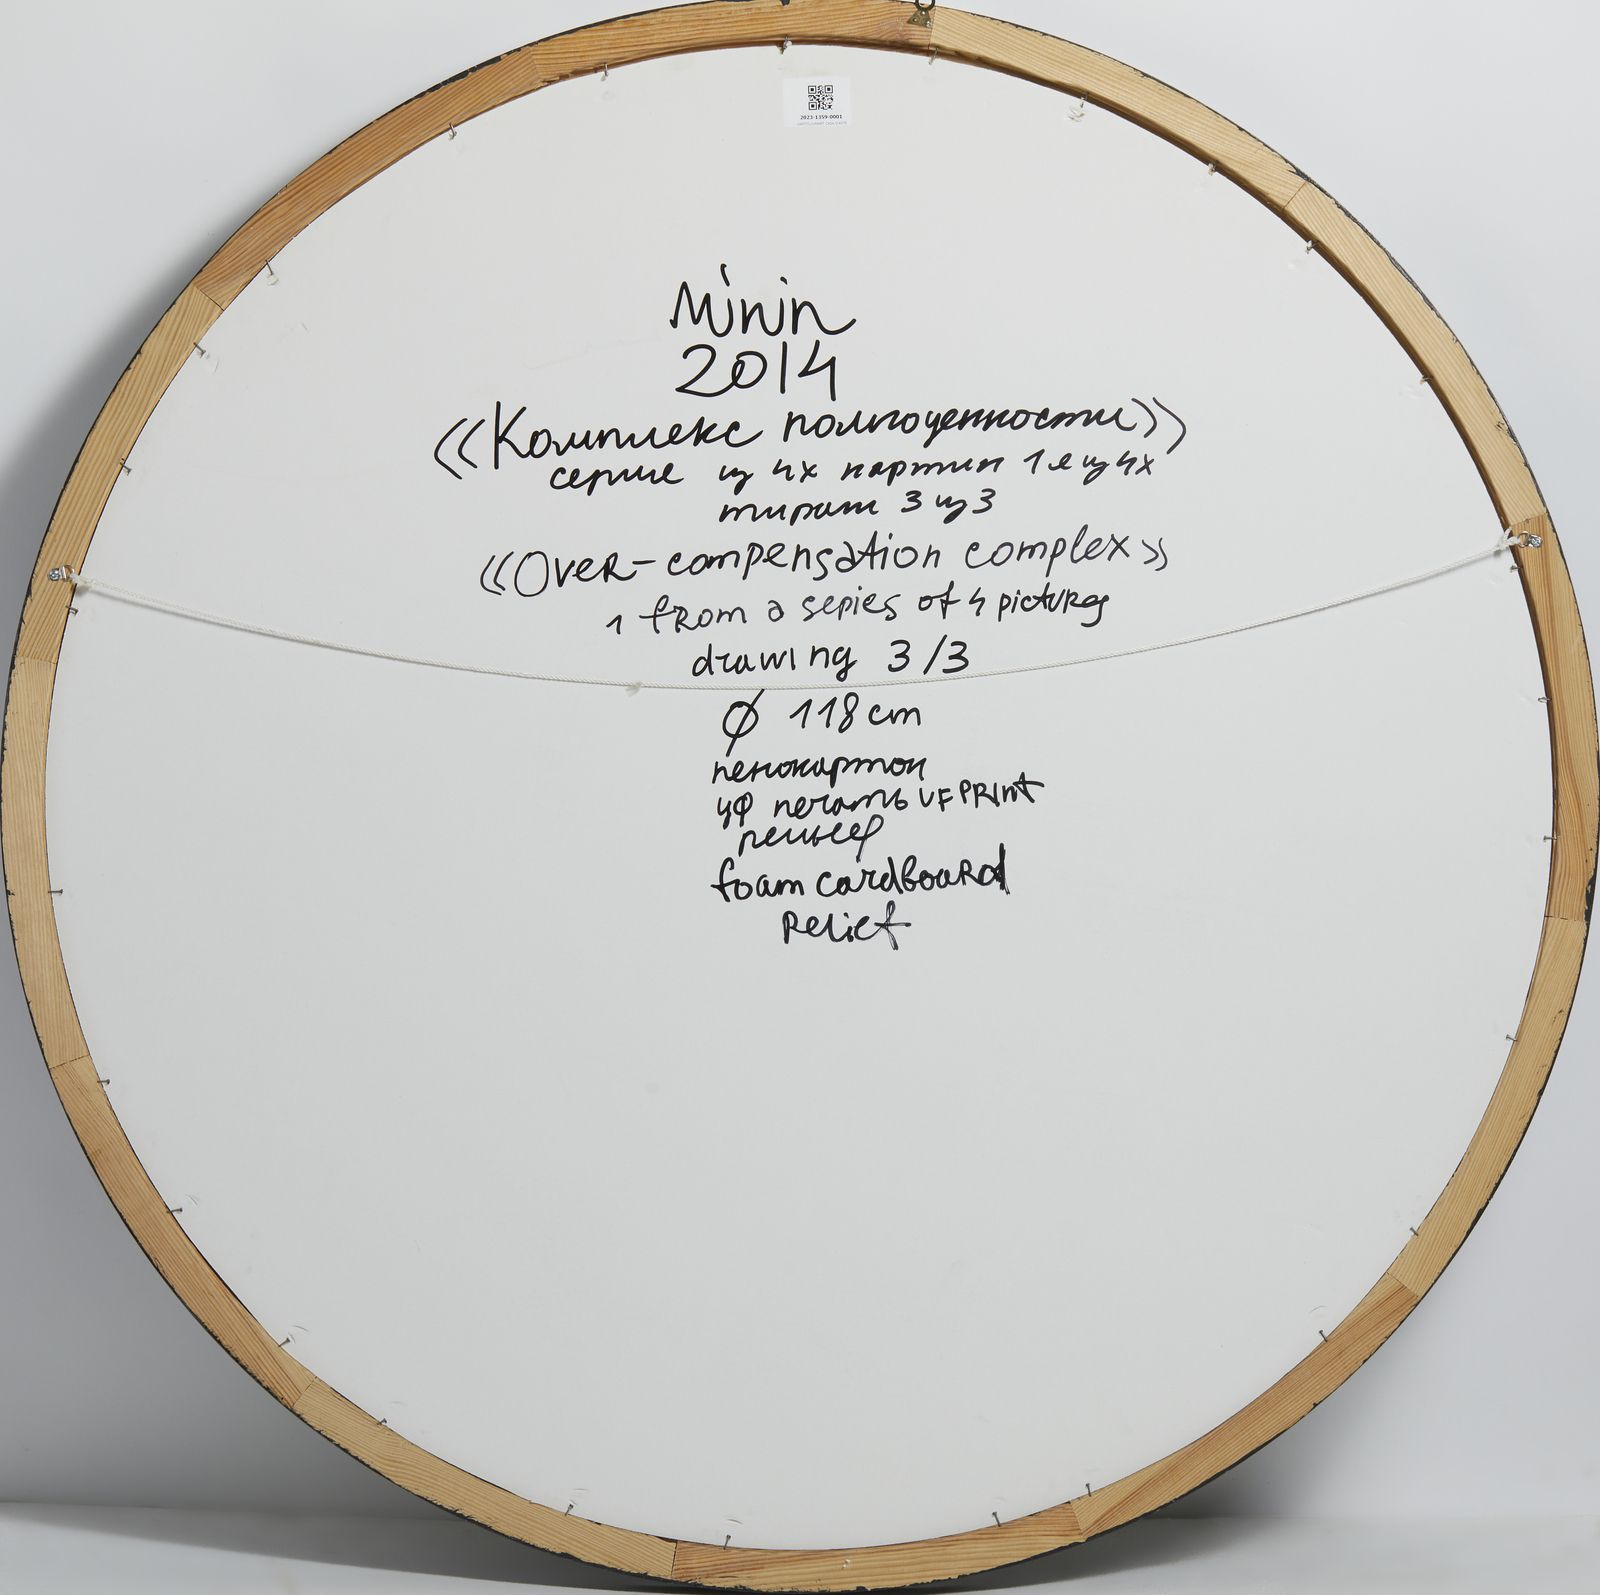 2023-1359-0001
Minin
2014
«Комплекс полноценности»
серия из 4х картин 1я из 4х
тираж 3 из 3
«Over-compensation complex»
1 from a series of 4 pictures
drawing 3/3
Ø 118 cm
пенокартон
УФ печать UF PRInt
рельеф
foam cardboard
Relief